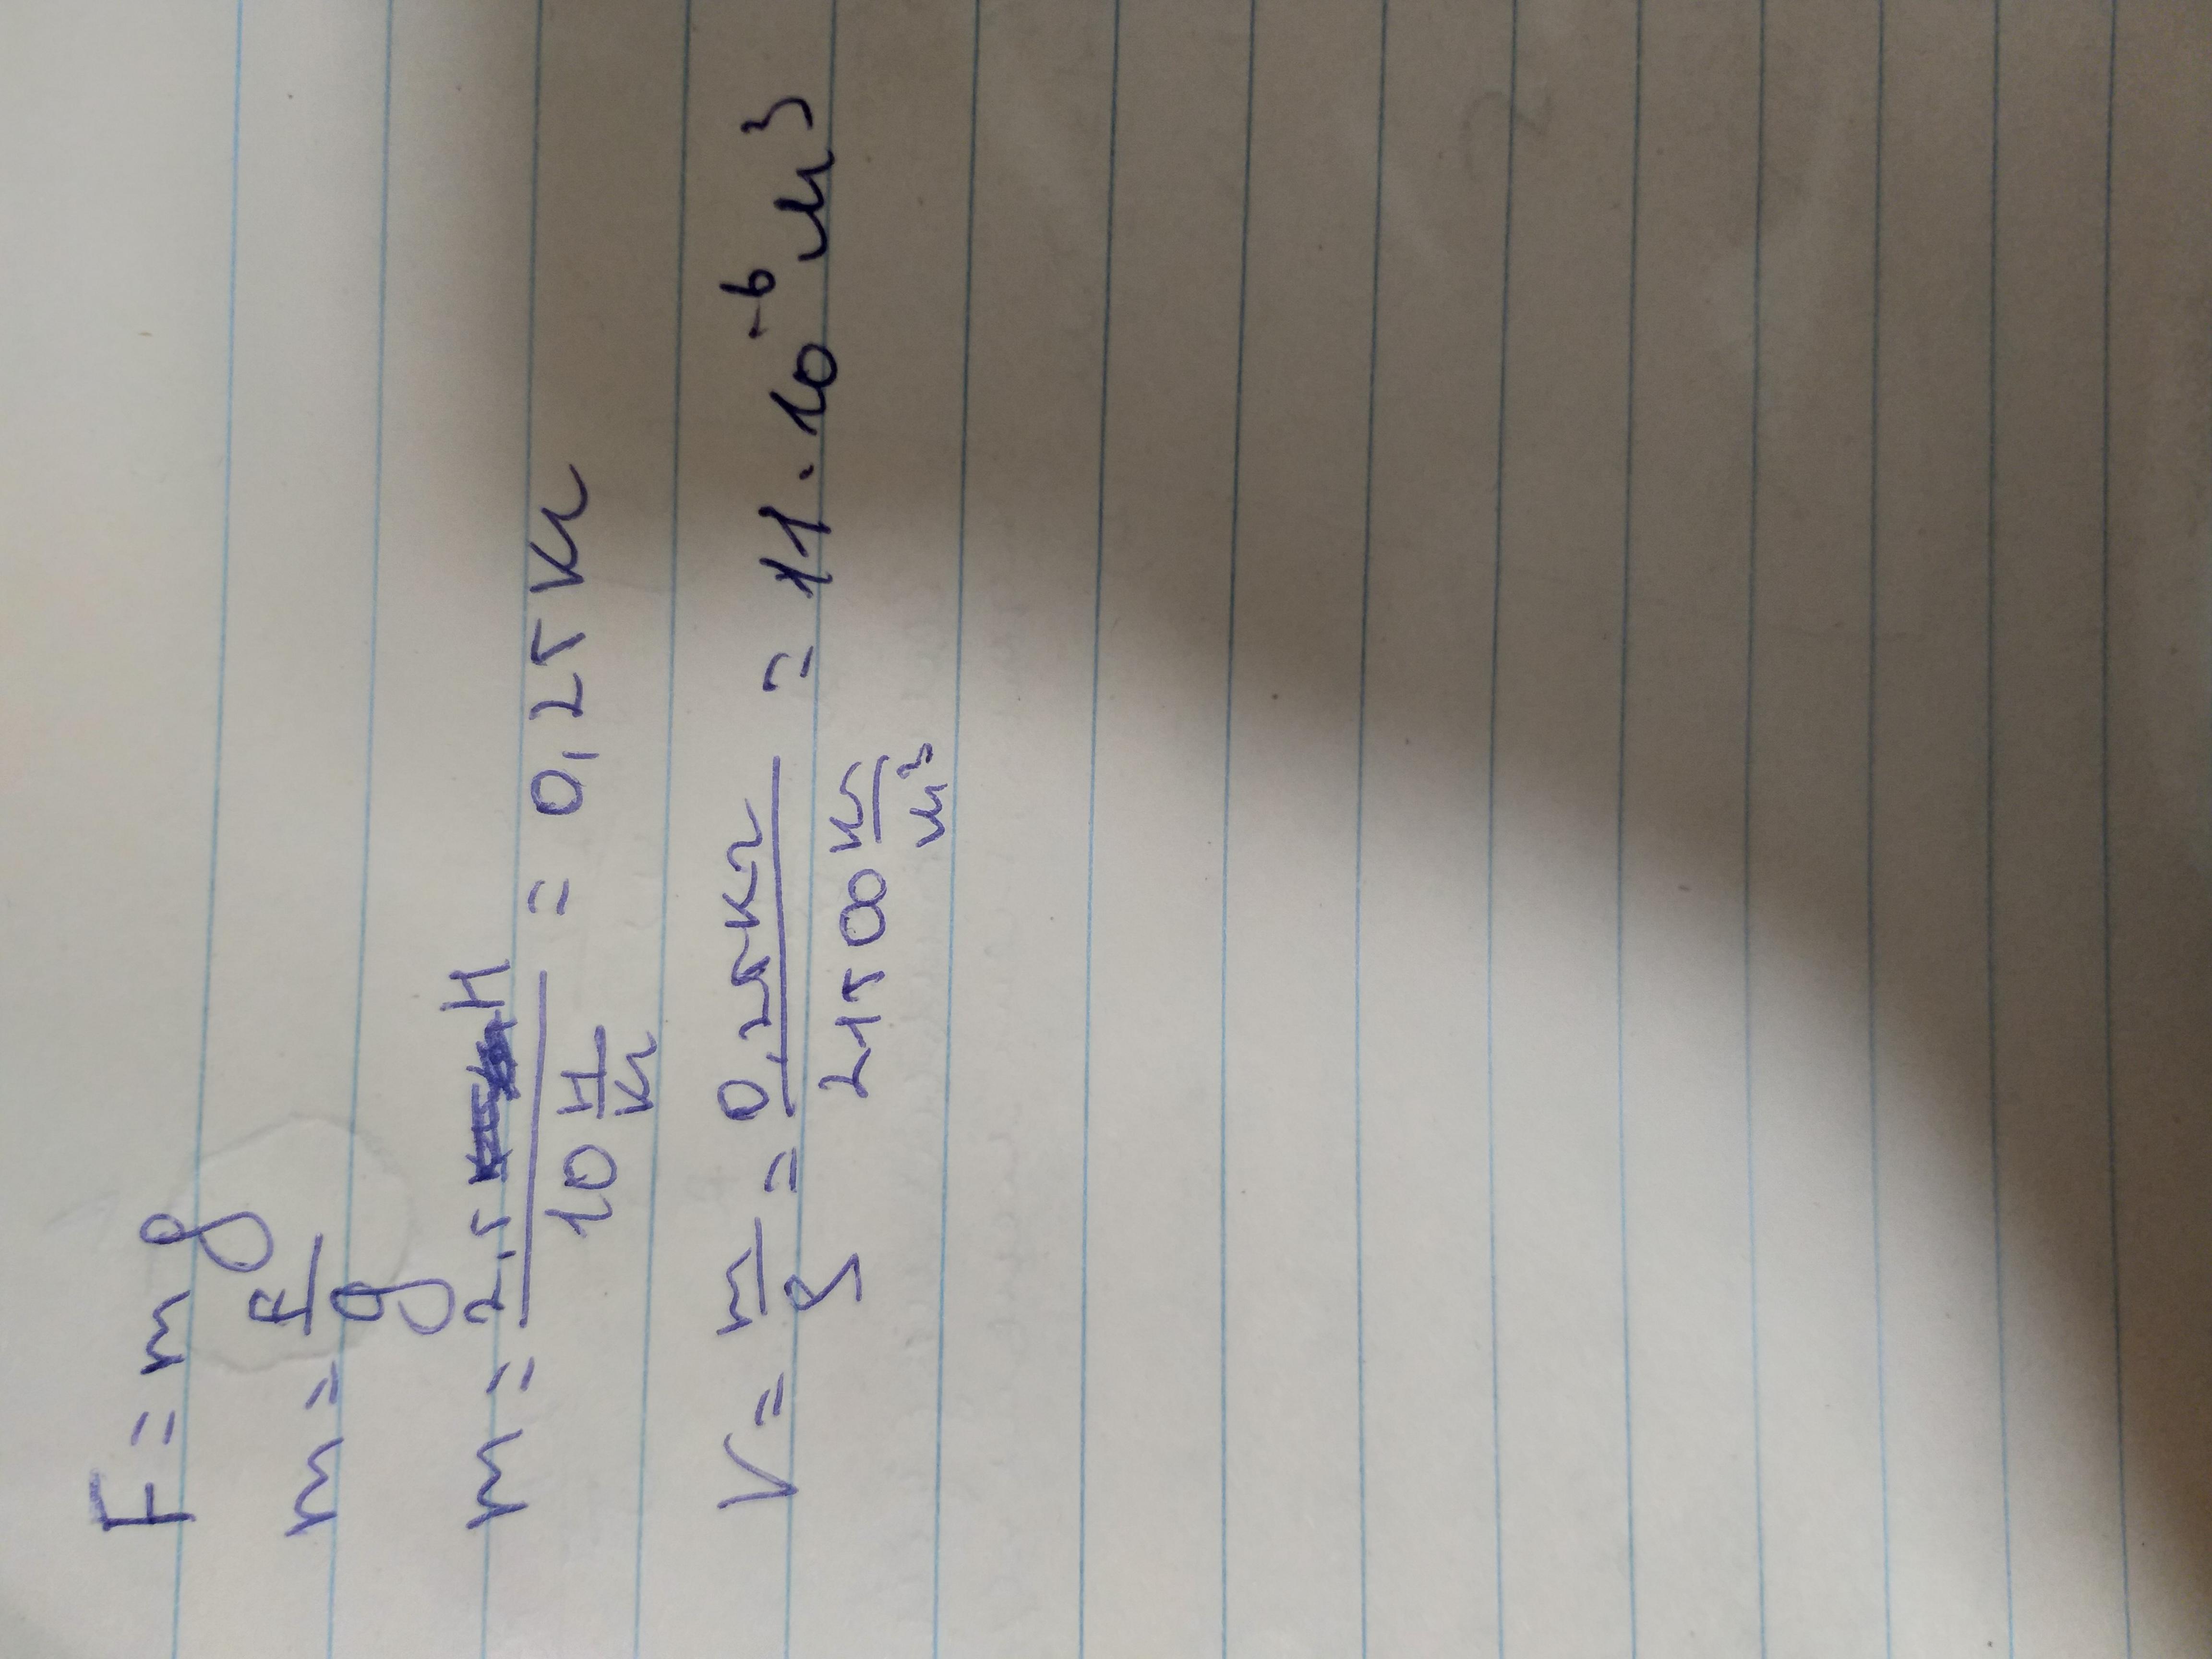 F = mg
m = F/g
m = 2,5 Н / 10 Н/кг = 0,25 кг
V = m/ρ = 0,25 кг / 21500 кг/м³ = 11 · 10⁻⁶ м³